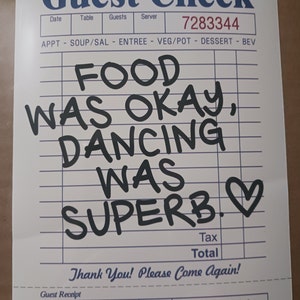 Guest Check
Date Table Guests Server 7283344
APPT - SOUP/SAL - ENTREE - VEG/POT - DESSERT - BEV
FOOD
WAS OKAY,
DANCING
WAS
SUPERB.
Tax
Total
Thank You! Please Come Again!
Guest Receipt